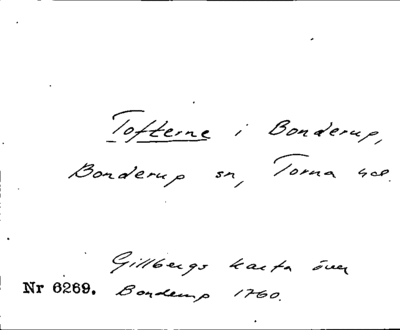 Tofterne i Bonderup,
Bonderup sn, Torna hd.
Gillbergs karta över
Nr 6269. Bonderup 1760.